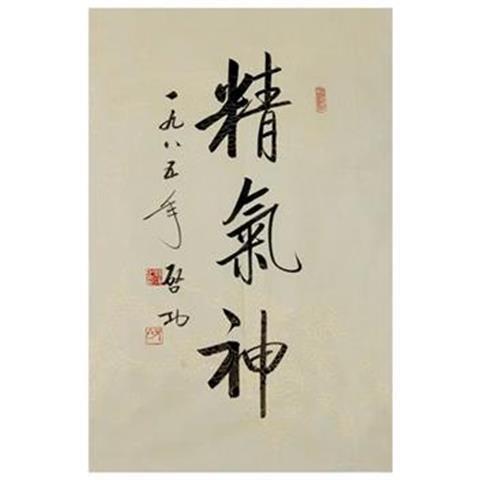 精氣神
一九八五年 啓功